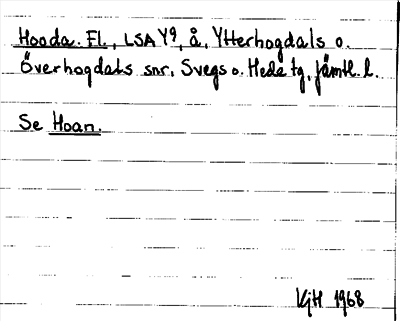 Hooda. Fl., LSA Y9, å, Ytterhogdals o.
Överhogdals snr, Svegs o. Hede tg, Jämtl. l.
Se Hoan.
KjH 1968